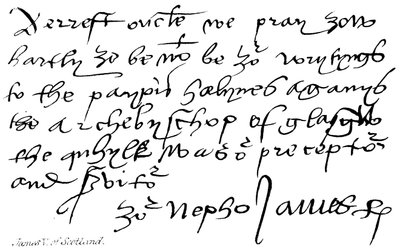 Derrest oncle we pray zow
hartly zo be wt be zor vrytyngs
to the paypis halynes aganys
the archebyschop of glasgw
the quhylk was or preceptor
and servitor
zor Nepho James R
James V. of Scotland.